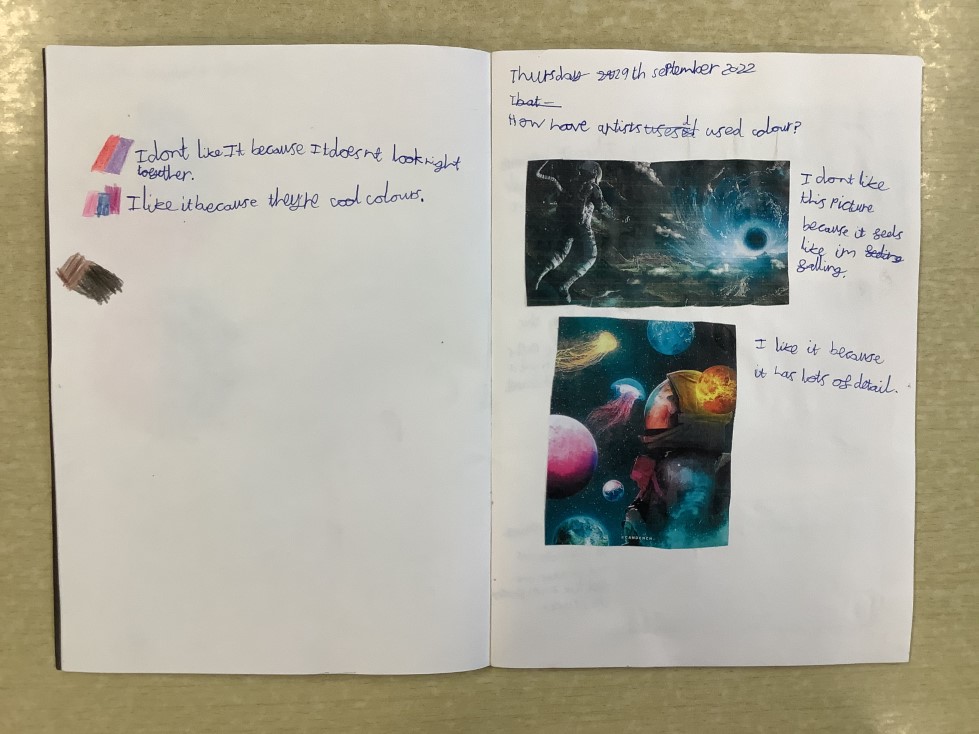 I dont like It because It doesnt look right
together.
I like it because they're cool colours.
Thursday 29th september 2022
How have artists used colour?
I dont like
this picture
because it feels
like im
falling.
I like it because
it has lots of detail.